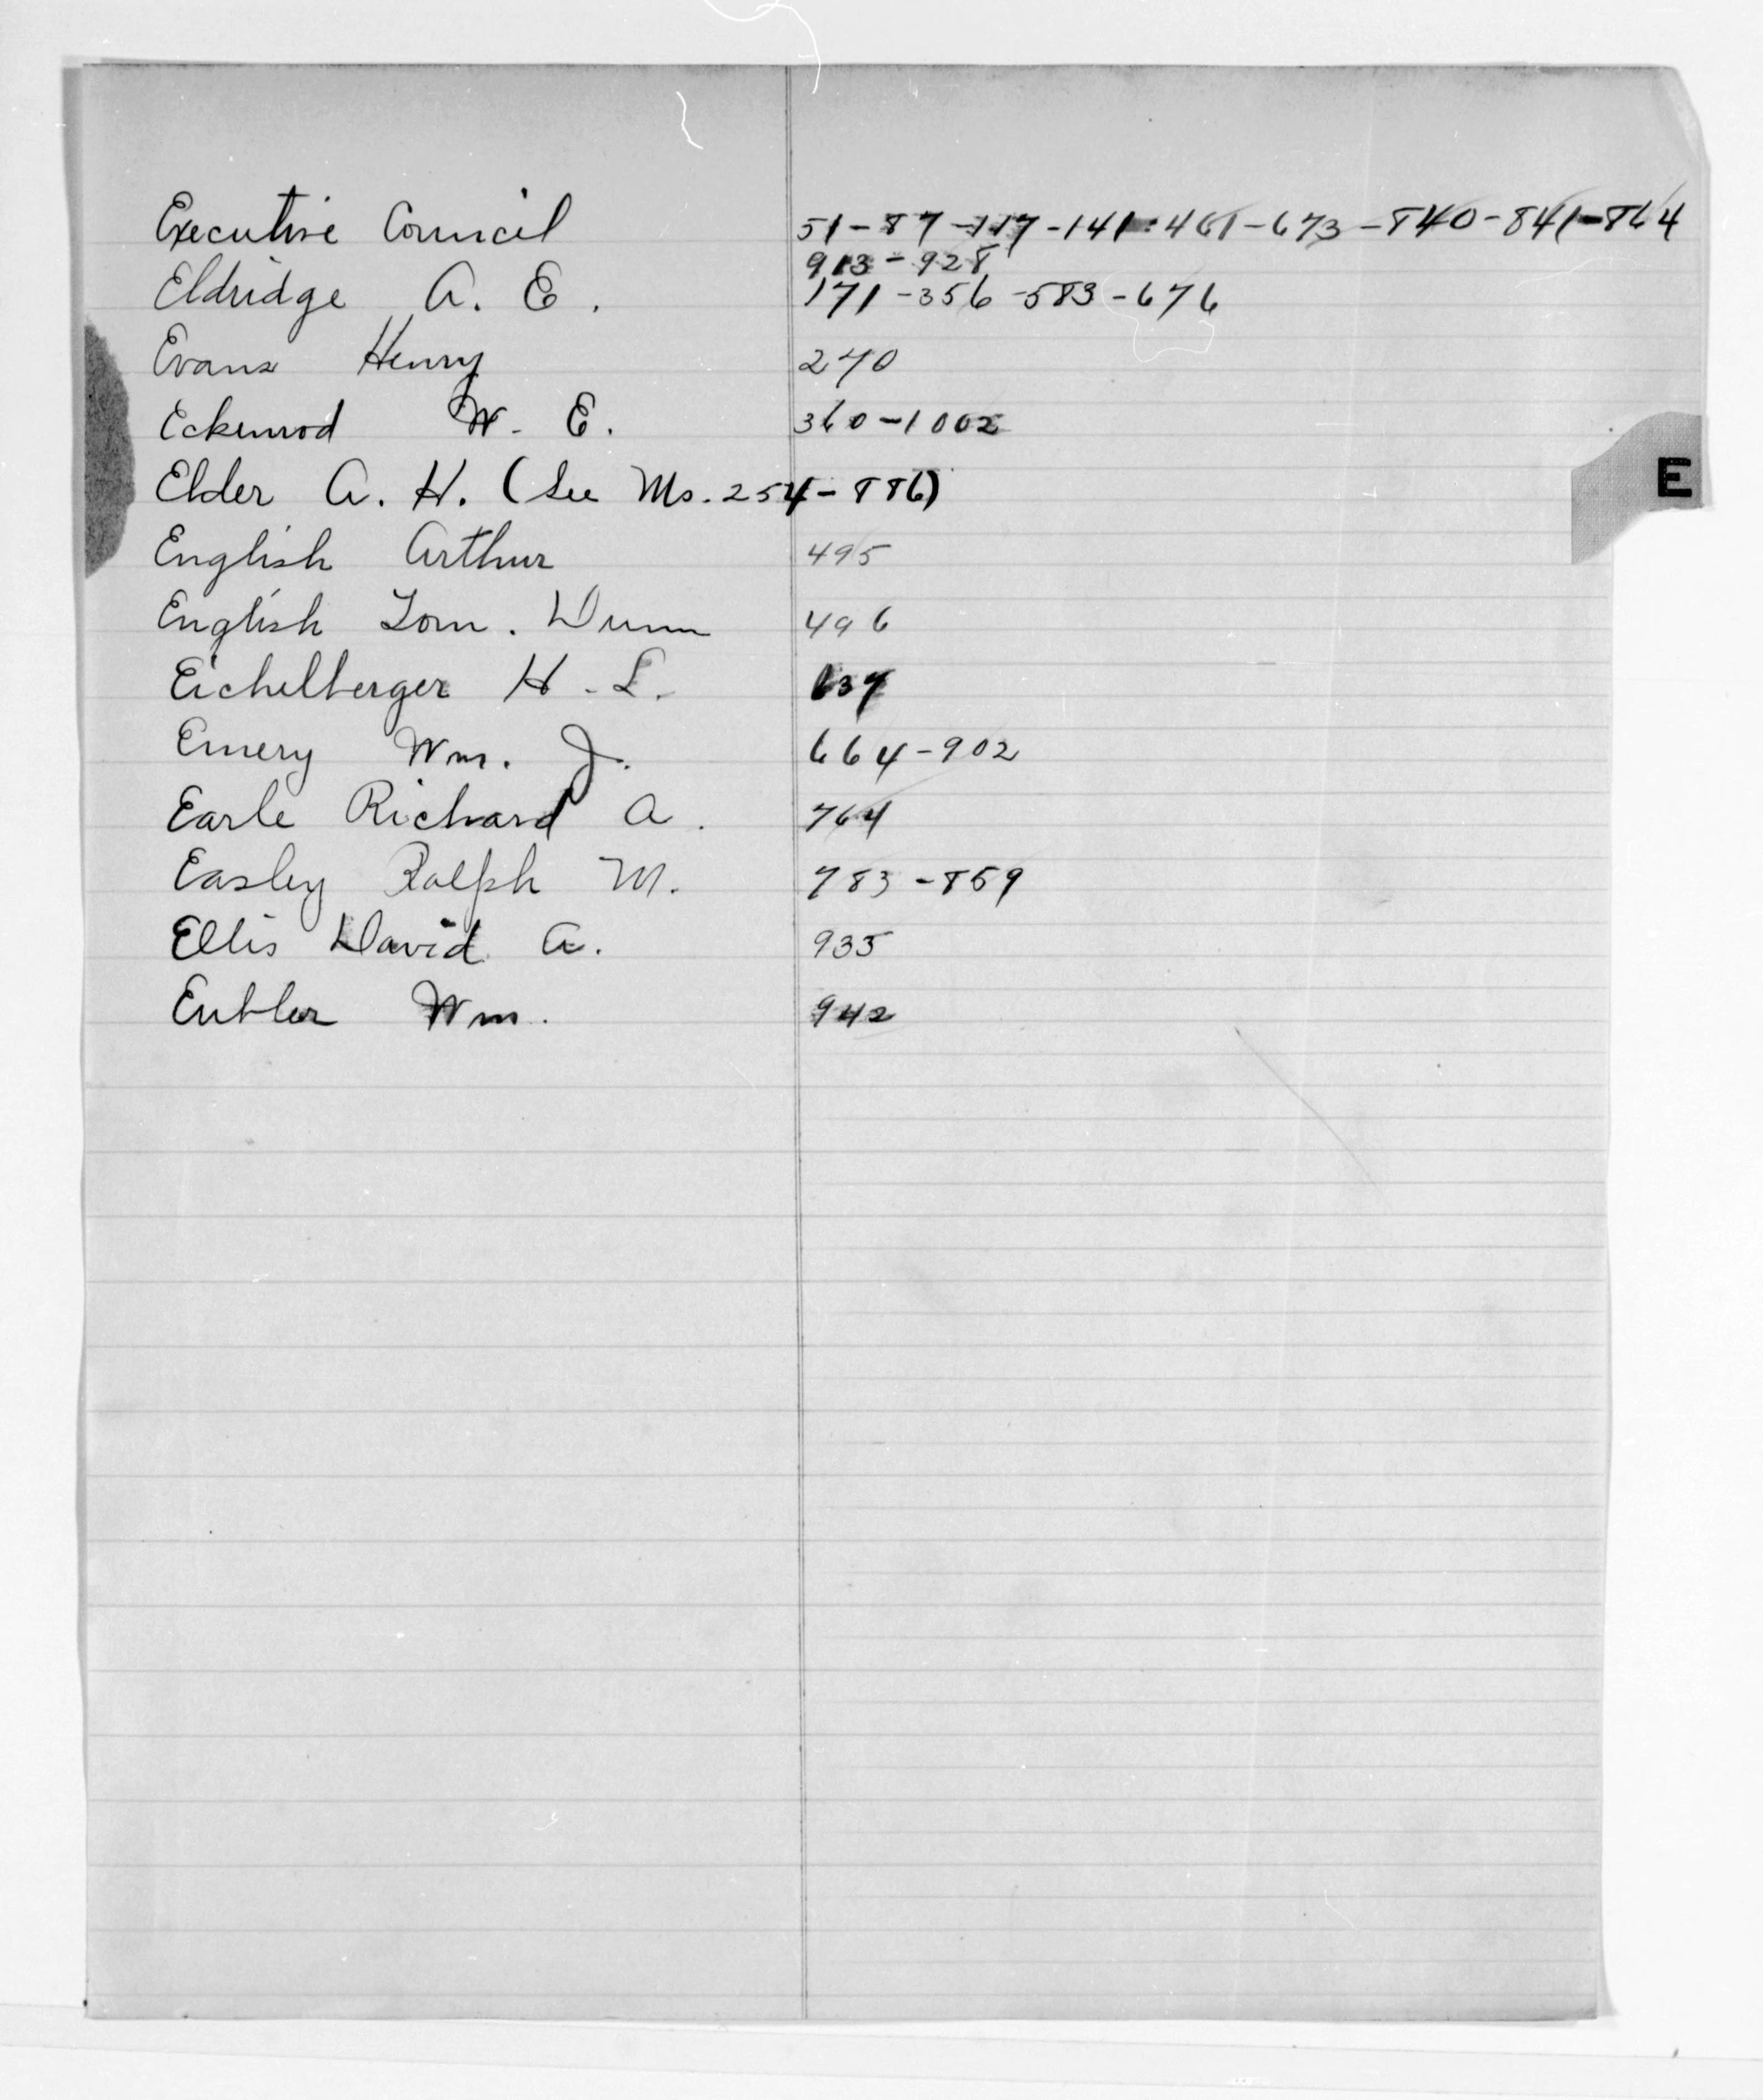 Executive Council 51-87-117-141-461-673-840-841-864
913-928
Eldridge A. E. 171-356-583-676
Evans Henry 270
Eckenrod W. E. 360-1002
Elder A. H. (See Ms. 254-886)
E
English Arthur 495
English Tom. Dunn 496
Eichelberger H. L. 637
Emery Wm. J. 664-902
Earle Richard A. 764
Easley Ralph M. 783-859
Ellis David A. 935
Eubler Wm. 942